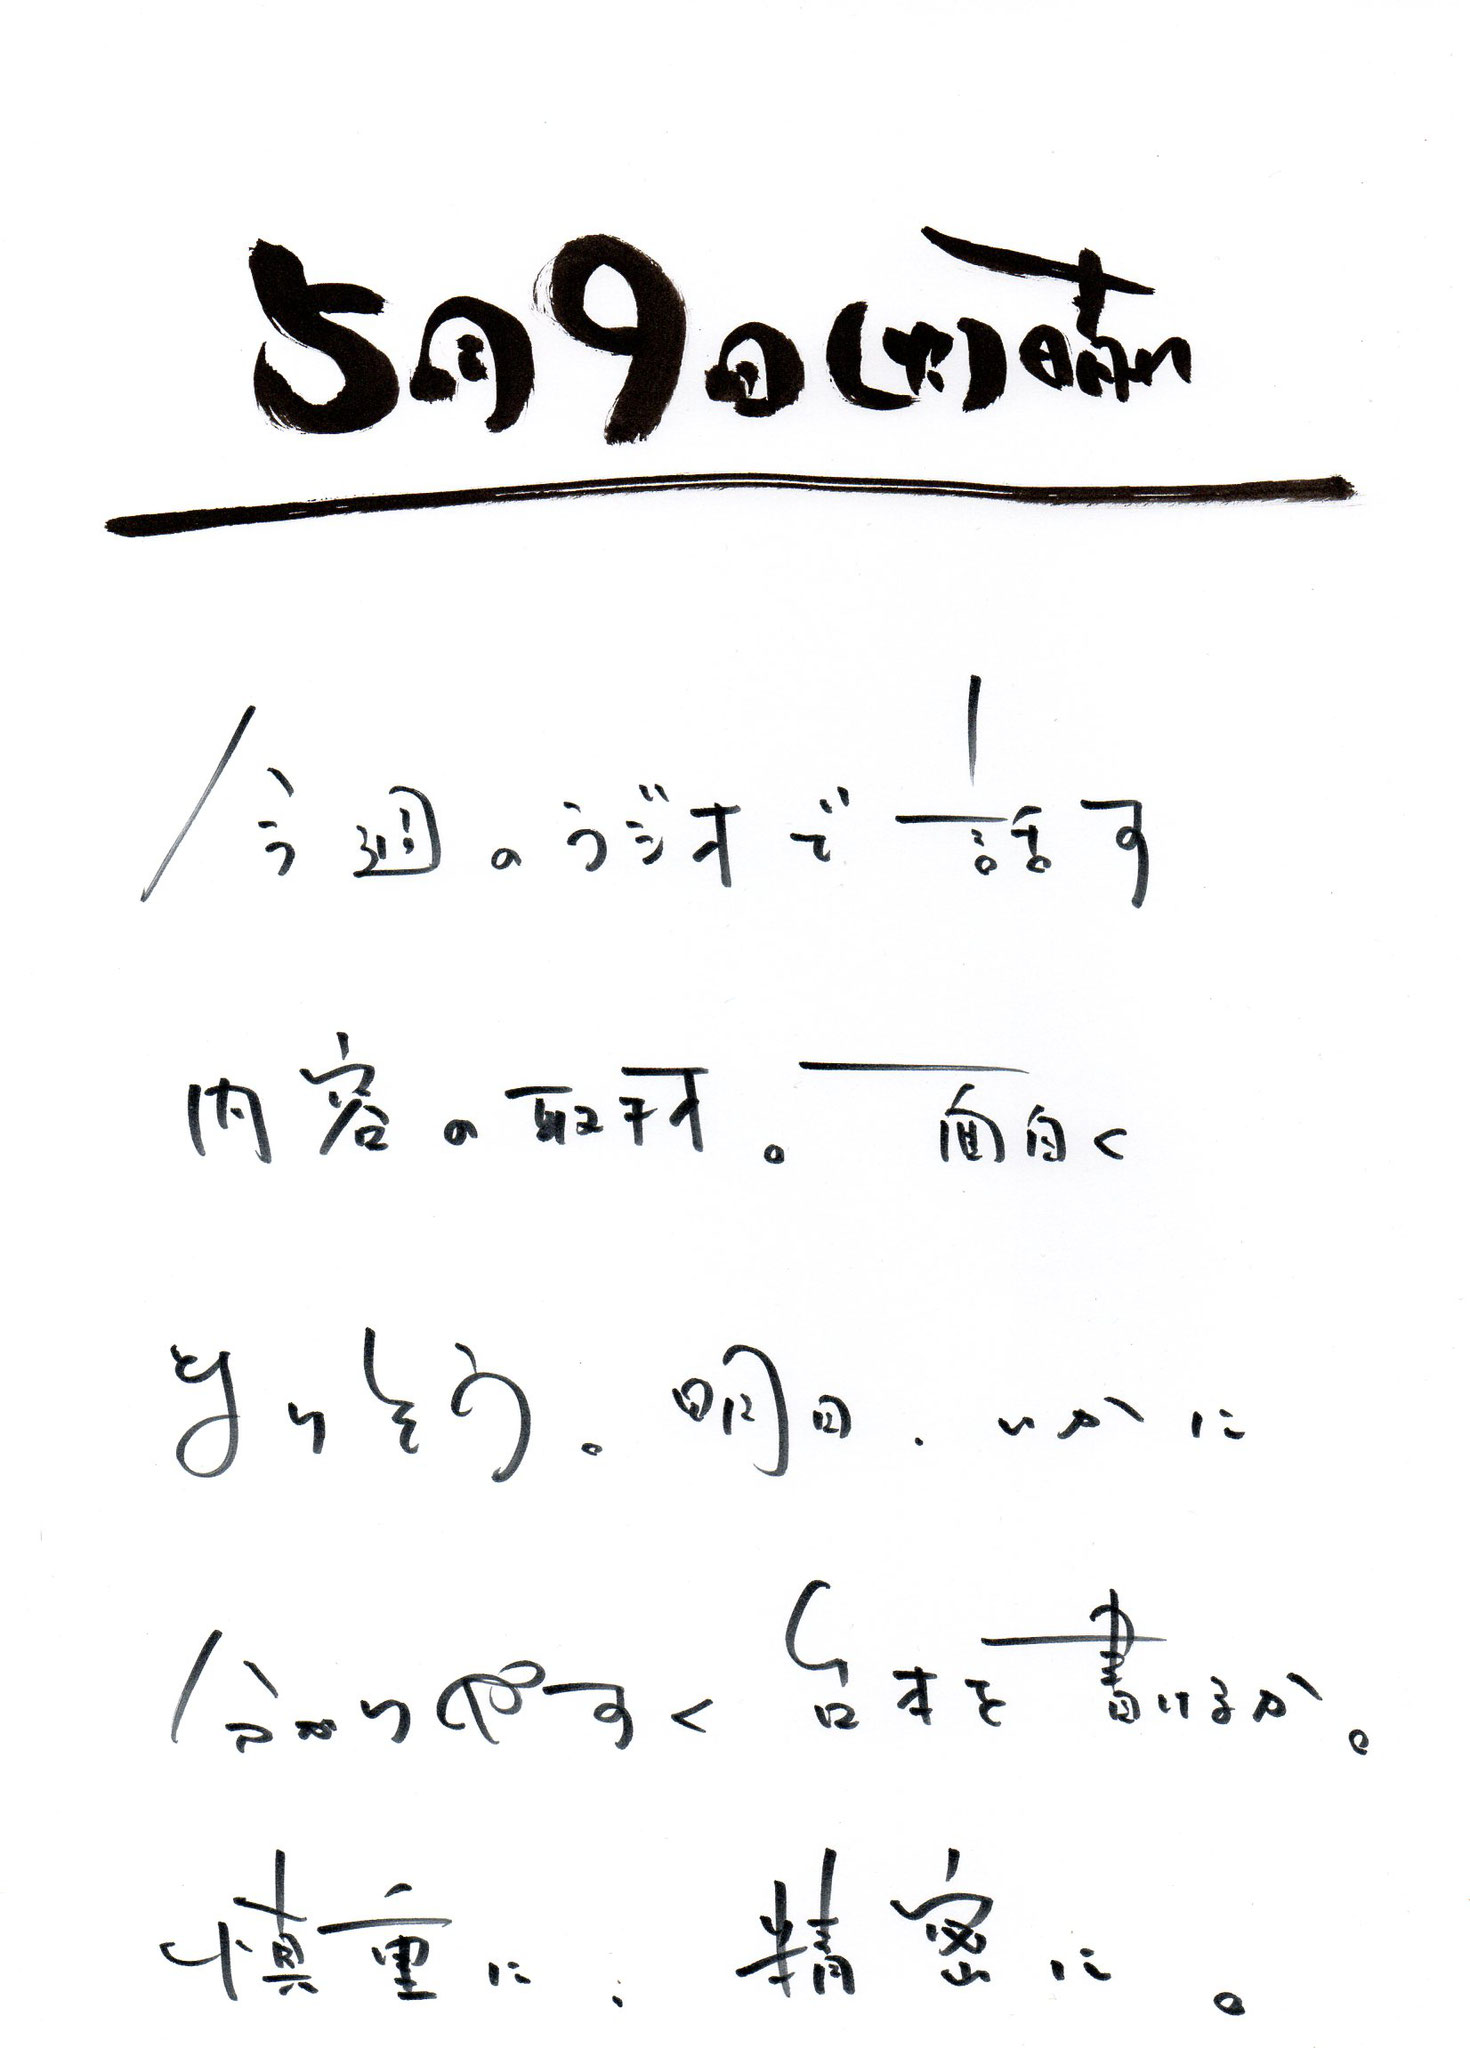 5月9日(木)晴れ
今週のラジオで話す
内容の取材。面白く
なりそう。明日、いかに
分かりやすく台本を書けるか。
慎重に、精密に。